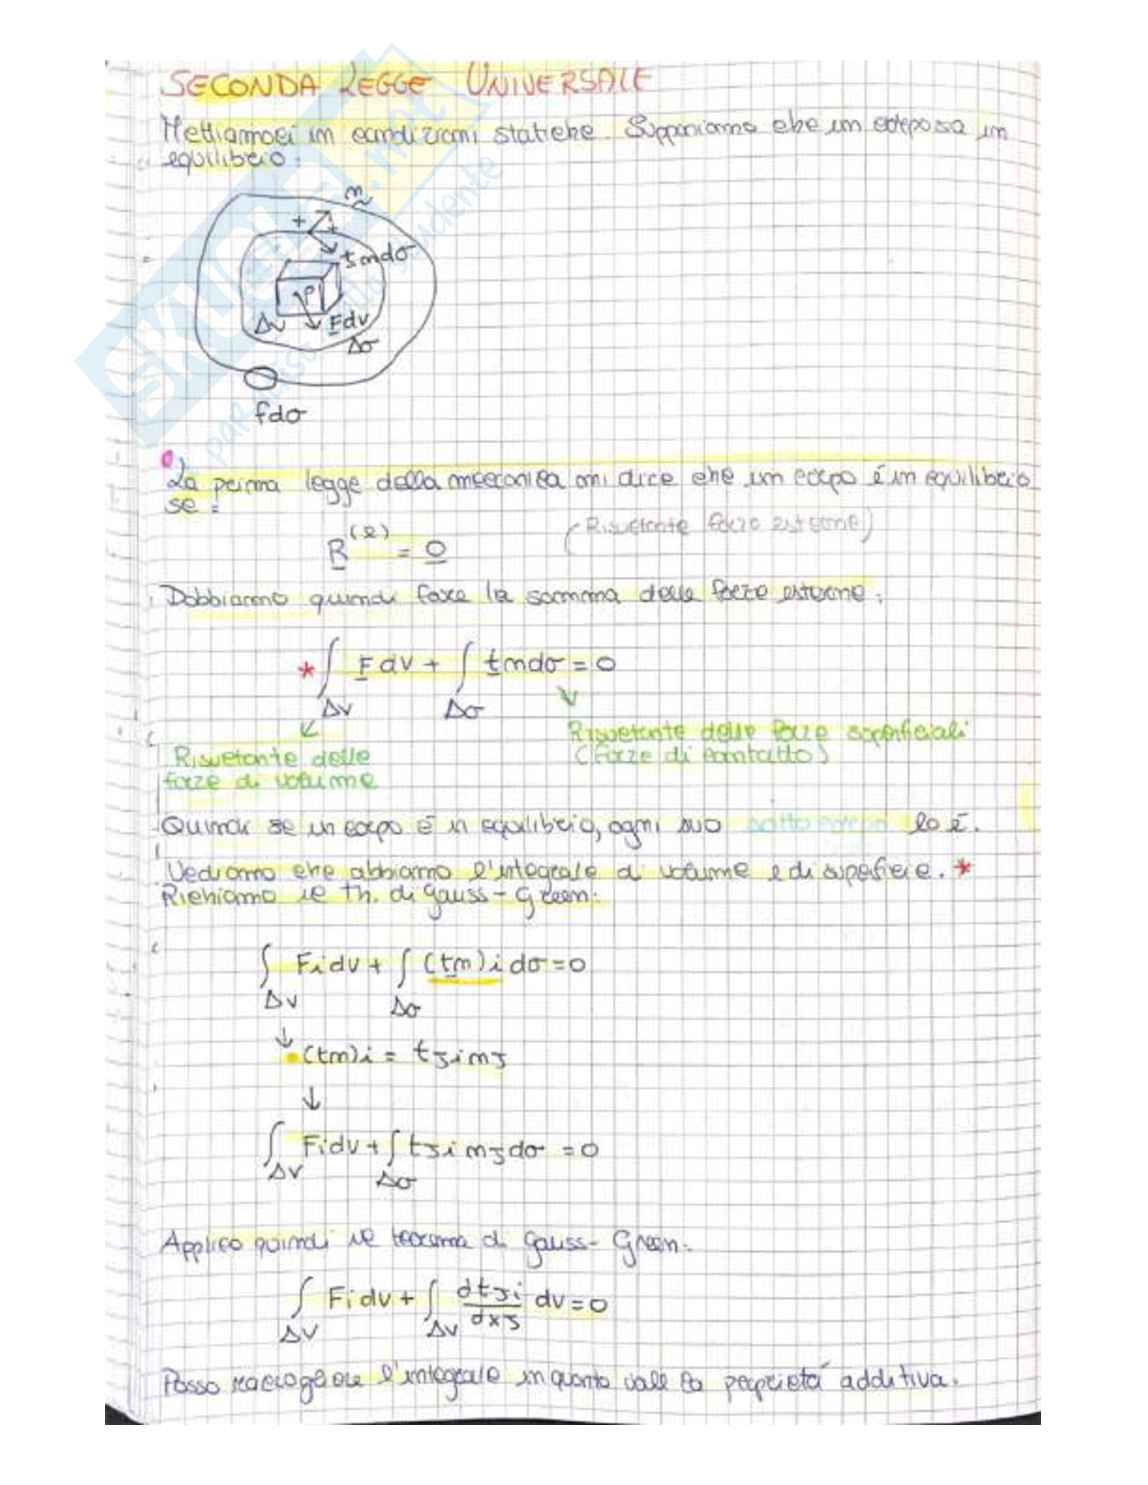 SECONDA LEGGE UNIVERSALE
Mettiamoci in condizioni statiche. Supponiamo che un corpo sia in
equilibrio:
n
+
tndσ
P
ΔV Fdv
Δσ
fdσ
La prima legge della meccanica mi dice che un corpo é in equilibrio
se:
R^(e) = 0 (Risultante forze esterne)
Dobbiamo quindi fare la somma delle forze esterne:
* ∫ F dv + ∫ tn dσ = 0
ΔV Δσ
Risultante delle forze superficiali
(forze di contatto)
Risultante delle
forze di volume
Quindi se un corpo è in equilibrio, ogni suo sotto corpo lo è.
Vediamo che abbiamo l'integrale di volume e di superficie. *
Richiamo il th. di Gauss-Green:
∫ Fi dv + ∫ (tn)i dσ = 0
ΔV Δσ
(tn)i = tji nj
∫ Fi dv + ∫ tji nj dσ = 0
ΔV Δσ
Applico quindi il teorema di Gauss-Green:
∫ Fi dv + ∫ dtji/dxj dv = 0
ΔV ΔV
Posso raccogliere l'integrale in quanto vale la proprietá additiva.